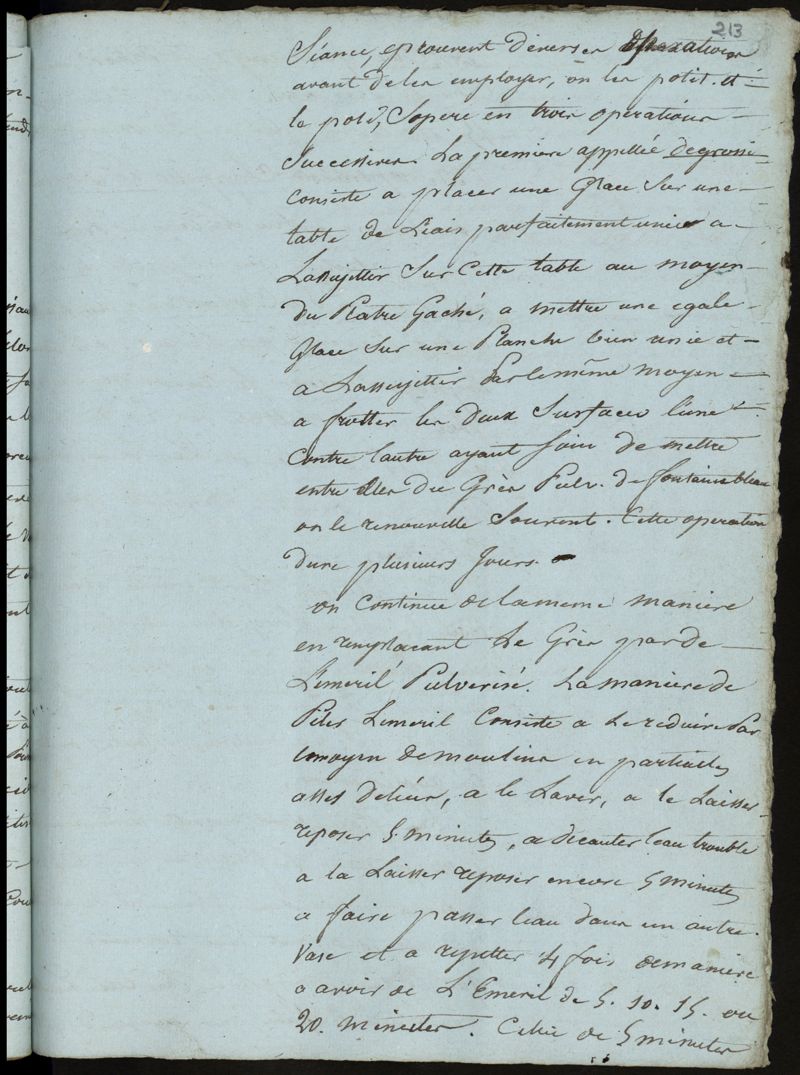 213
Séance, eprouvent diverses operations
avant de les employer, on les polit. et
le poli, Sopere en trois operations
Successives. La premiere appellée degrossi
Consiste a placer une Glace Sur une
table de Liais parfaitement unie a
Lassujettir Sur Cette table au moyen
du Platre Gaché, a mettre une egale
Glace Sur une Planche bien unie et
a Lassujettir Par le même moyen
a frotter les deux Surfaces l'une
Contre lautre ayant soin de mettre
entre elles du Grès Pulv. de fontainebleau
on le renouvelle Souvent. Cette operation
dure plusieurs Jours.
on Continue de la meme maniere
en remplacant Le Grès par de
L'emeril Pulverisé. La maniere de
Piler Lemeril Consiste a Le reduire Par
lemoyen de moulins en particules
asses deliées, a le Laver, a le Laisser
reposer 5 minutes, a decanter leau trouble
a la Laisser reposer encore 5 minutes
a faire passer leau dans un autre
Vase et a repetter 4 fois de maniere
a avoir de L'Emeril de 5. 10. 15. ou
20. minutes. Celui de 5 minutes